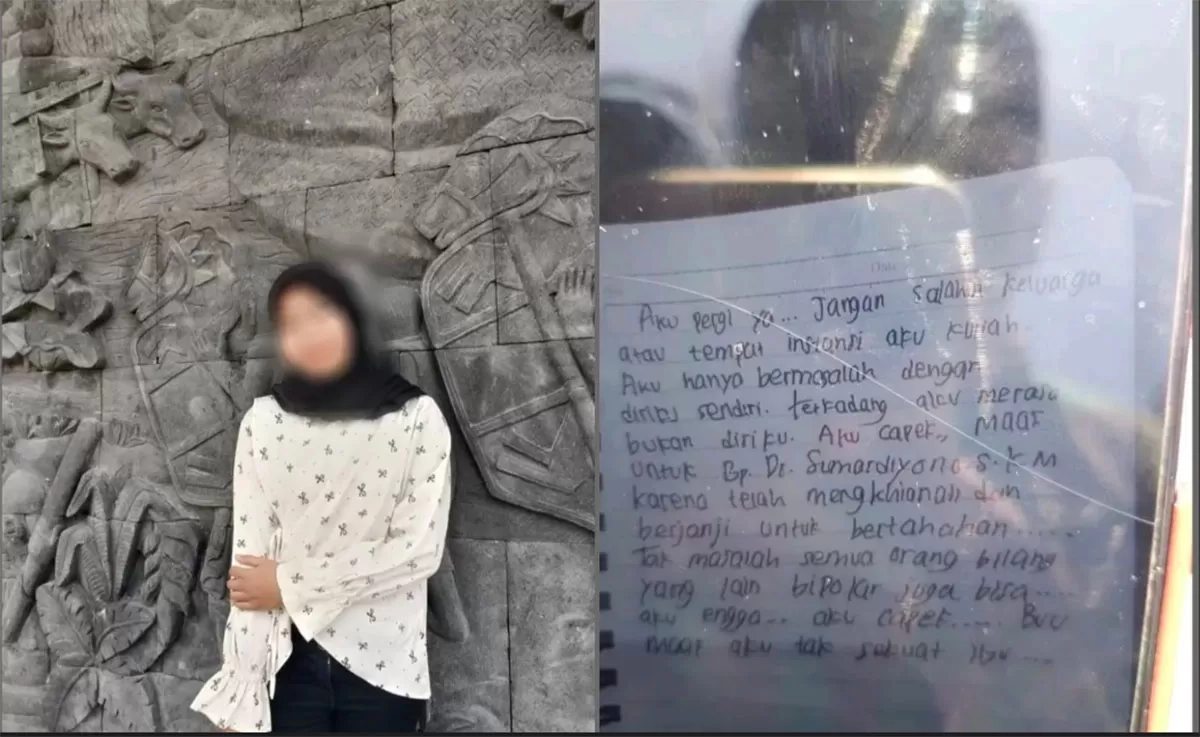 Aku pergi ya... Jangan salahin keluarga
atau tempat instansi aku kuliah.
Aku hanya bermasalah dengan
diriku sendiri. terkadang aku merasa
bukan diriku. Aku capek., maaf
untuk Bp. Dr. Sumardiyono S.KM
karena telah mengkhianati dan
berjanji untuk bertahahan......
Tak masalah semua orang bilang
yang lain bipolar juga bisa.....
aku engga... aku capek..... Buu
maaf aku tak sekuat ibu....